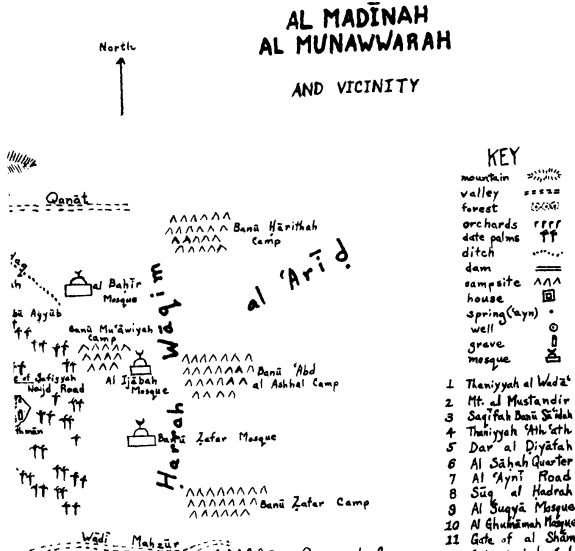 AL MADĪNAH
AL MUNAWWARAH
AND VICINITY
North
Qanāt
Banū Ḥārithah
Camp
al 'Arīḍ
al Baḥīr
Mosque
Ayyūb
Banū Mu'āwiyah
Camp
Al Ijābah
Mosque
of Safiyyah
Najd Road
Banū 'Abd
al Ashhal Camp
Banū Ẓafar Mosque
Ḥarrah Wāqim
Banū Ẓafar Camp
Wādī Mahzūr
KEY
mountain
valley
forest
orchards
date palms
ditch
dam
campsite
house
spring ('ayn)
well
grave
mosque
1 Thaniyyah al Wadā'
2 Mt. al Mustandir
3 Saqīfah Banū Sā'idah
4 Thaniyyah 'Ath'ath
5 Dar al Ḍiyāfah
6 Al Sāḥah Quarter
7 Al 'Aynī Road
8 Sūq al Ḥadrah
9 Al Suqyā Mosque
10 Al Ghumāmah Mosque
11 Gate of al Shām